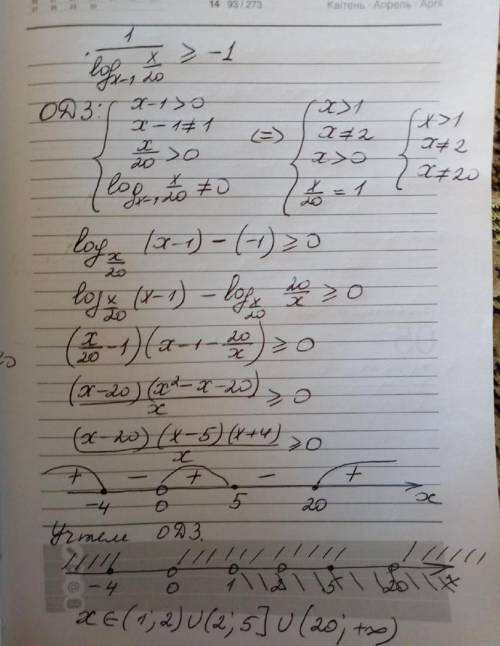 14 93/273 Квітень · Апрель · April
1/(log_{x-1} x/20) ≥ -1
ОДЗ: { x-1>0 { x>1 { x>1
x-1≠1 (=) x≠2 x≠2
x/20 >0 x>0 x≠20
log_{x-1} x/20 ≠0 x/20 = 1
log_{x/20} (x-1) - (-1) ≥ 0
log_{x/20} (x-1) - log_{x/20} 20/x ≥ 0
(x/20 - 1)(x-1- 20/x) ≥ 0
(x-20)(x²-x-20)/x ≥ 0
(x-20)(x-5)(x+4)/x ≥ 0
+ - + - +
-4 0 5 20 x
Учтем ОДЗ.
-4 0 1 2 5 20 x
x∈(1;2)∪(2;5]∪(20;+∞)